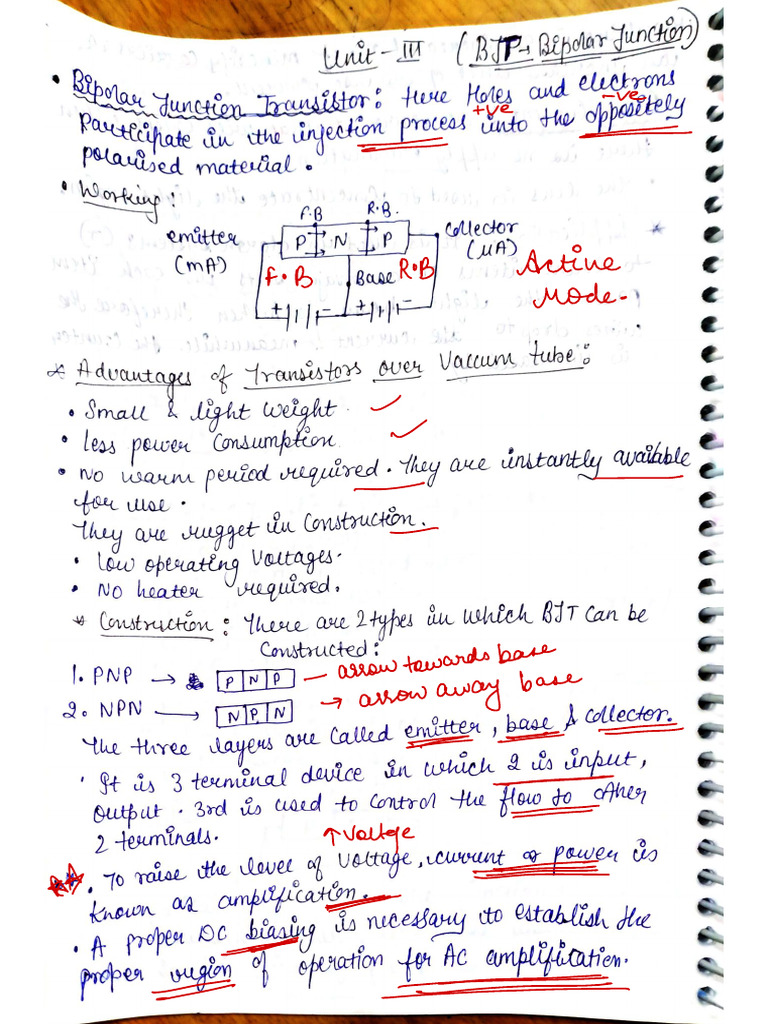 Unit - III (BJT → Bipolar Junction)
• Bipolar Junction Transistor: Here Holes and electrons
+ve -ve
participate in the injection process into the oppositely
polarised material.
• Working:
F.B R.B.
emitter P N P collector
(mA) (μA)
F.B Base R.B Active
Mode.
+ - + -
* Advantages of Transistors over Vaccum tube:
• Small & light weight
• less power consumption
• No warm period required. They are instantly available
for use.
They are rugget in construction.
• low operating voltages.
• No heater required.
* Construction: There are 2 types in which BJT can be
constructed:
1. PNP → P N P - arrow towards base
2. NPN → N P N → arrow away base
The three layers are called emitter, base & collector.
• It is 3 terminal device in which 2 is input,
output. 3rd is used to control the flow to other
2 terminals.
↑ voltage
• To raise the level of voltage, current or power is
known as amplification.
• A proper DC biasing is necessary to establish the
proper region of operation for AC amplification.